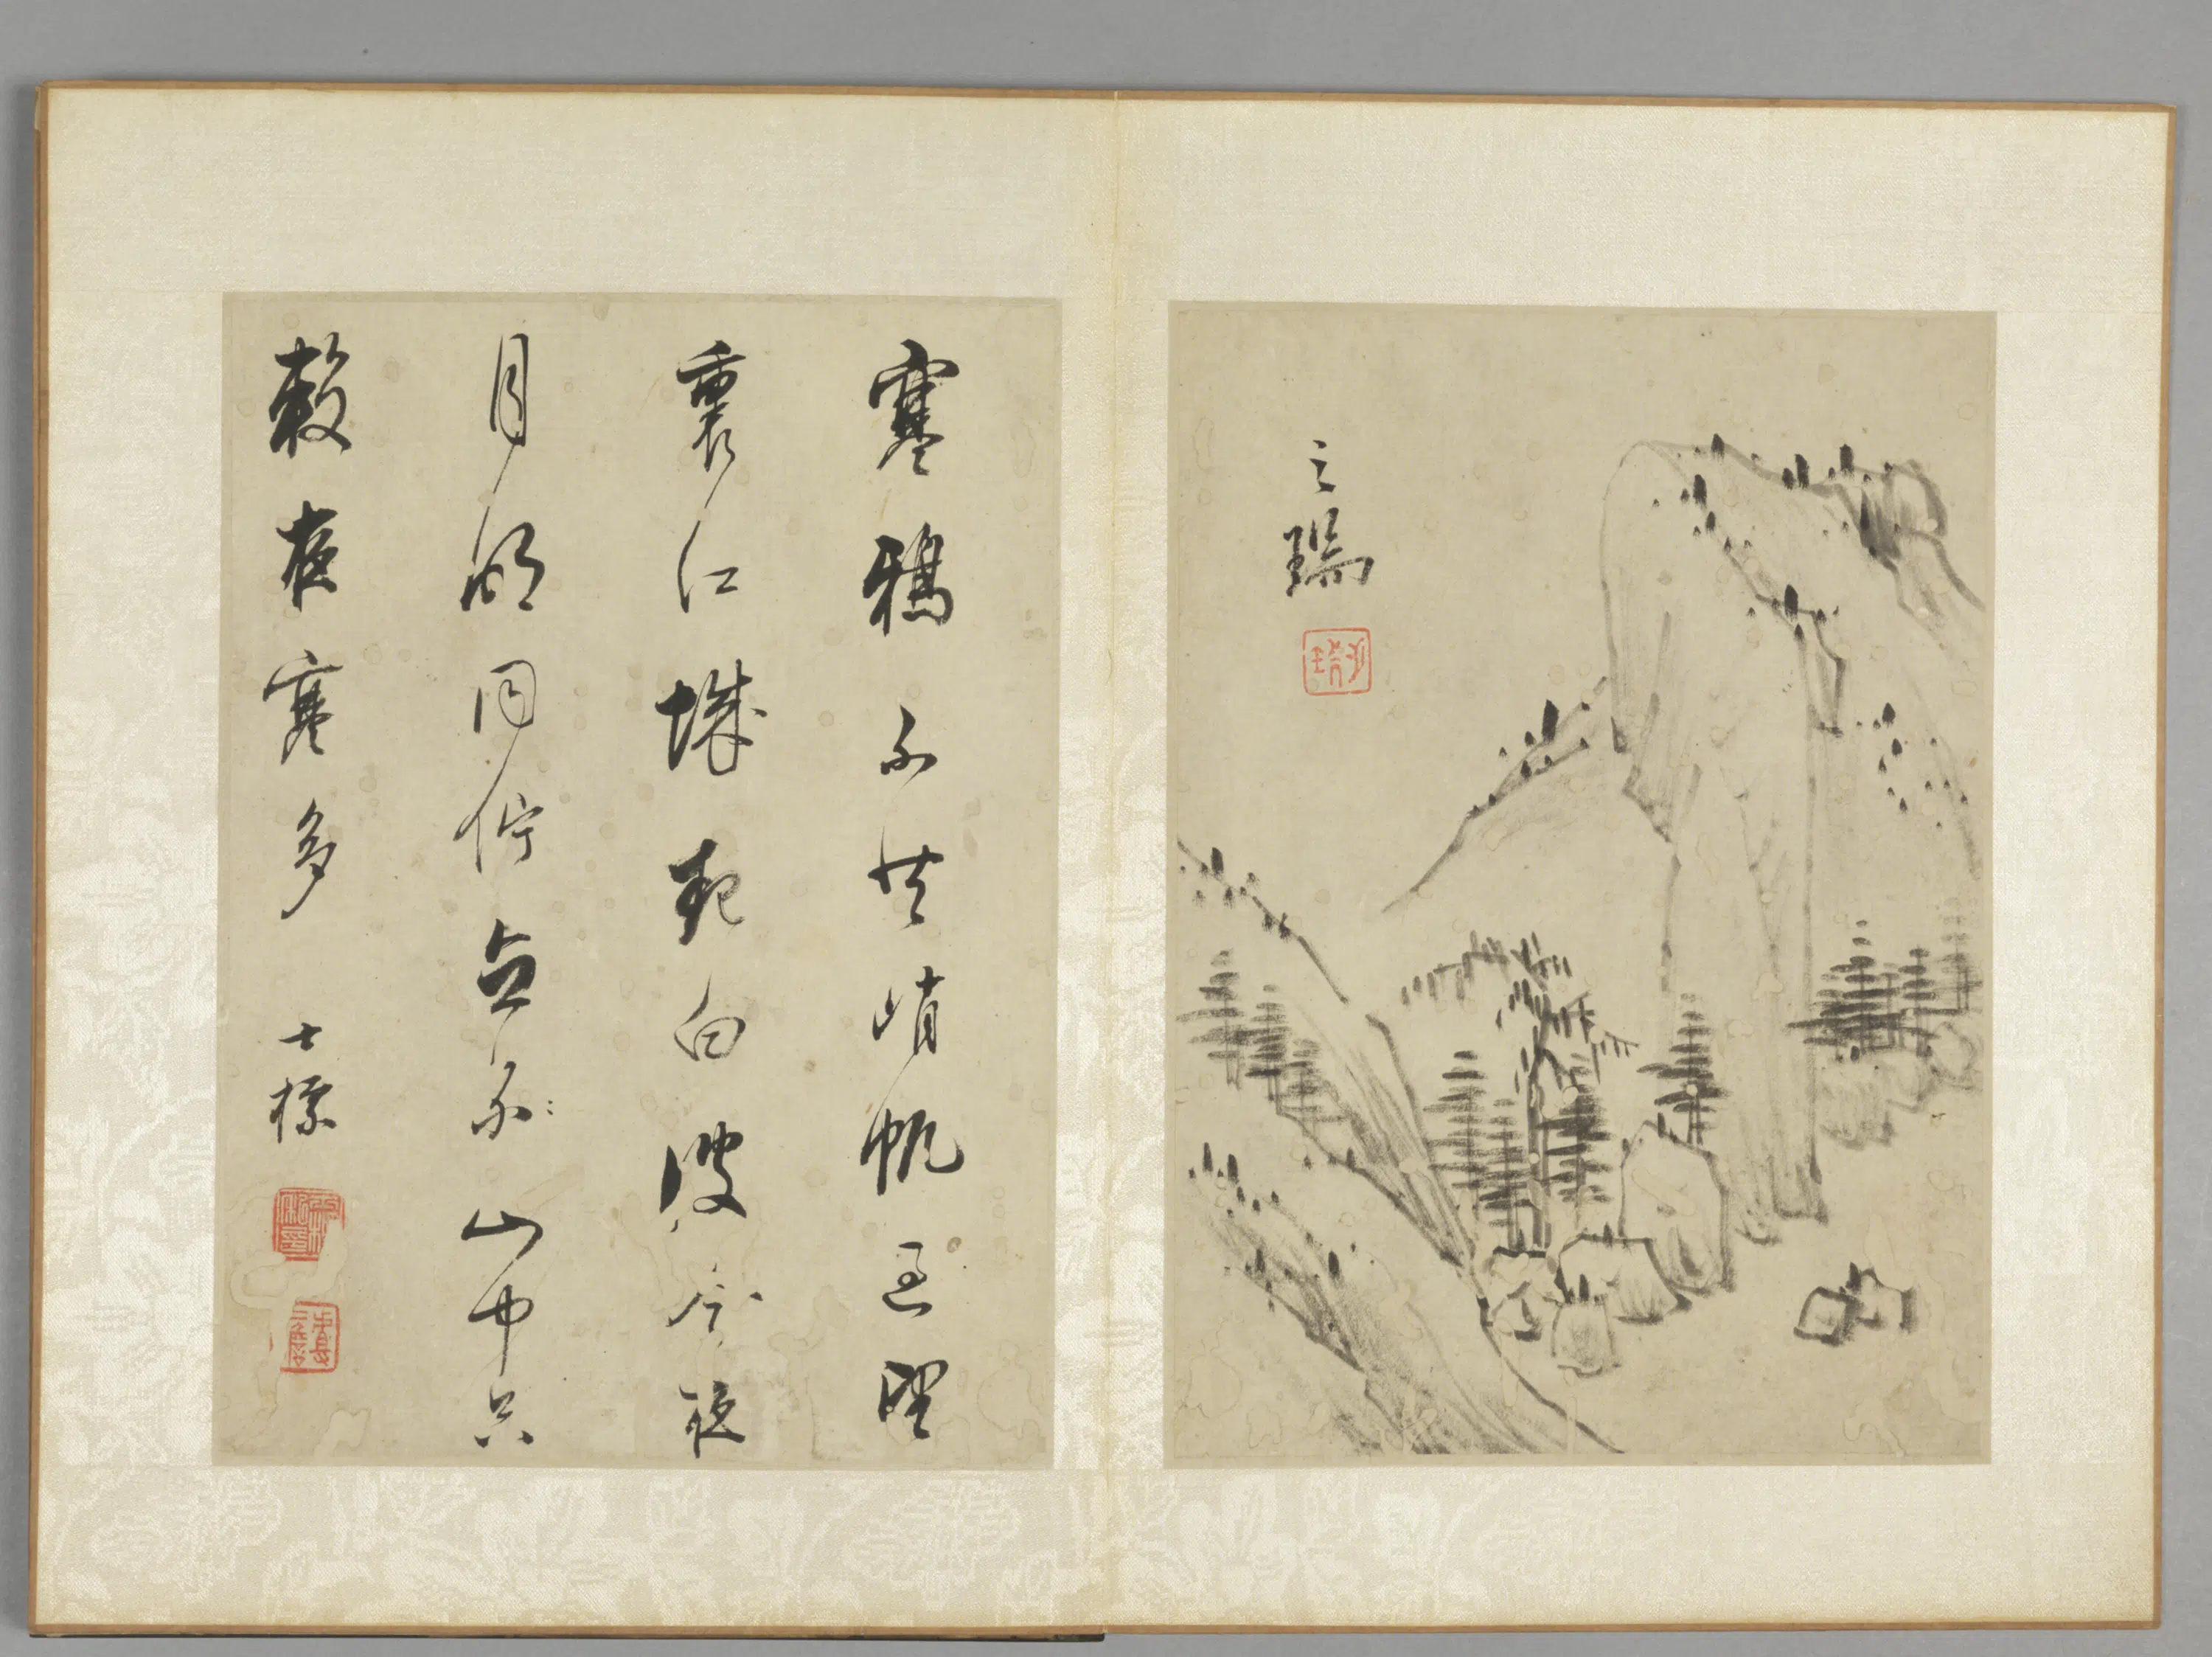 之瑞
寒鴉不共峭帆過望
裏江城白波今夜
月明同佇立不山中只
較夜寒多
士標